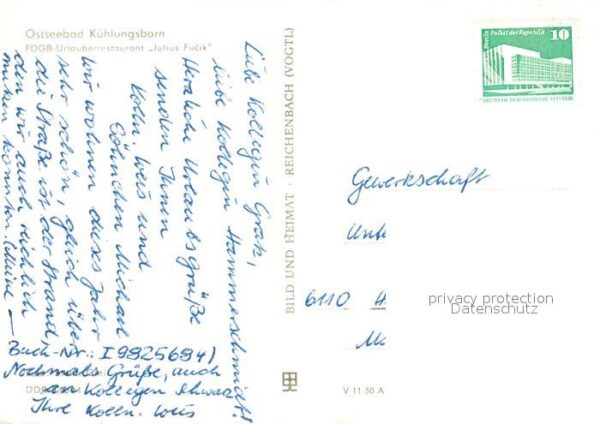 Ostseebad Kühlungsborn
FDGB-Urlauberrestaurant „Julius Fučik"
Liebe Kollegin Gratz,
liebe Kollegin Hammerschmidt!
Herzliche Urlaubsgrüße
senden Ihnen
Kolln. Weis und
Söhnchen Michael
Wir wohnen dieses Jahr
sehr schön, gleich über
die Straße ist der Strand,
den wir auch reichlich
nutzen konnten. (Meine —
Buch-Nr.: I 9825684)
Nochmals Grüße, auch
an Kollegen Schwarz
Ihre Kolln. Weis
DDR
BILD UND HEIMAT · REICHENBACH (VOGTL)
V 11 50 A
Berlin Palast der Republik
10
DEUTSCHE DEMOKRATISCHE REPUBLIK
Gewerkschaft
Unt
6110 H
privacy protection
Datenschutz